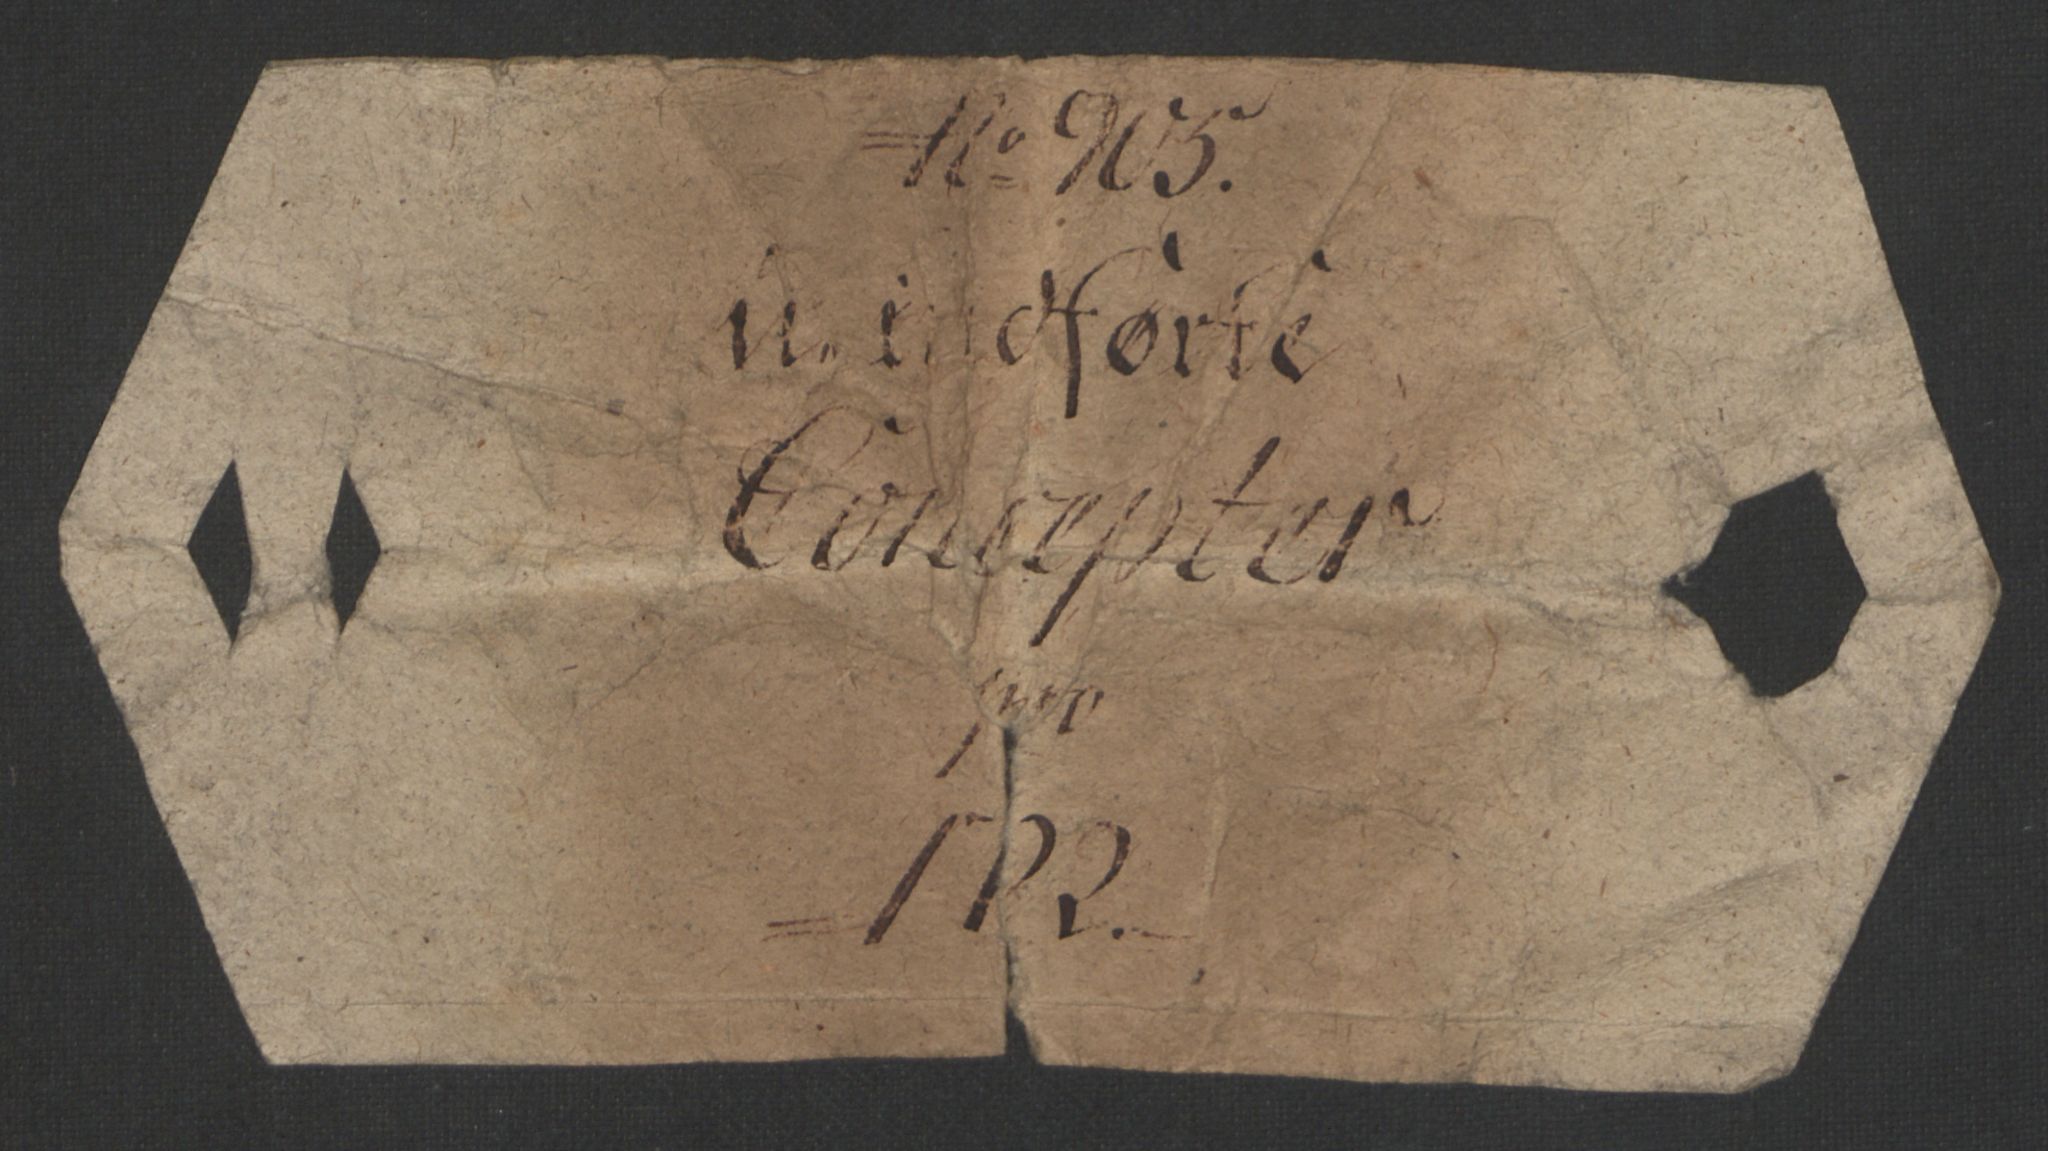 No 905.
u. indførte
Concepter
pro
1722.